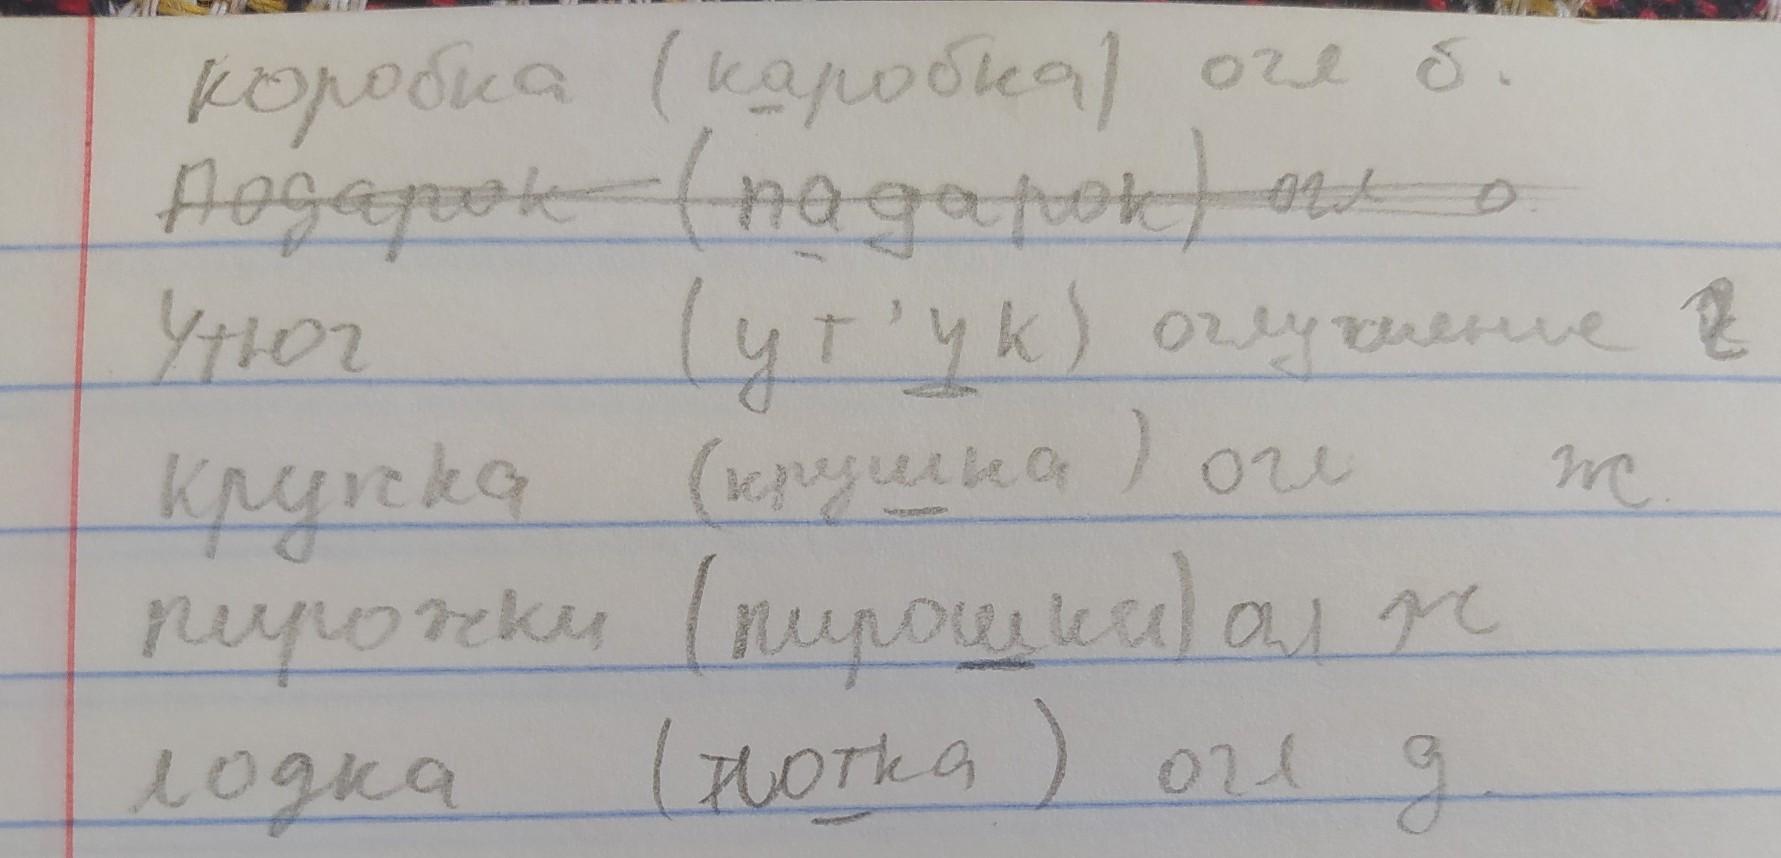 коробка (каробка) огл б.
Подарок (падарок) огл о.
Утюг (ут'ук) оглушение г
кружка (крушка) огл ж.
пирожки (пирошки) огл ж
лодка (лотка) огл д.